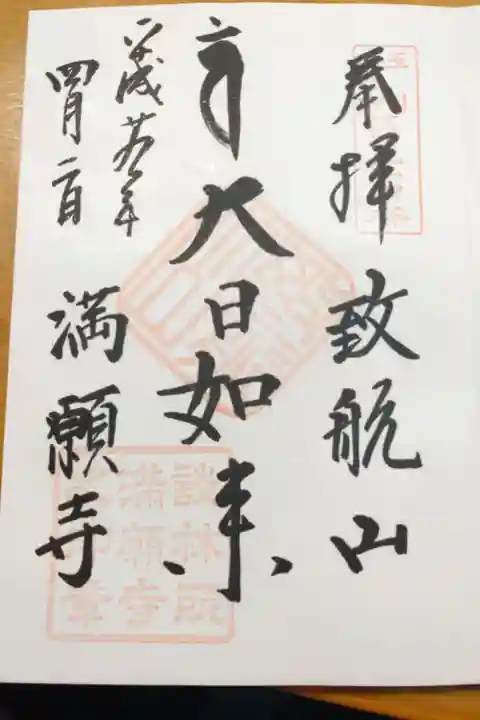 奉拝
致航山
大日如来
平成
年
四月二日
満願寺
談林所
満願寺